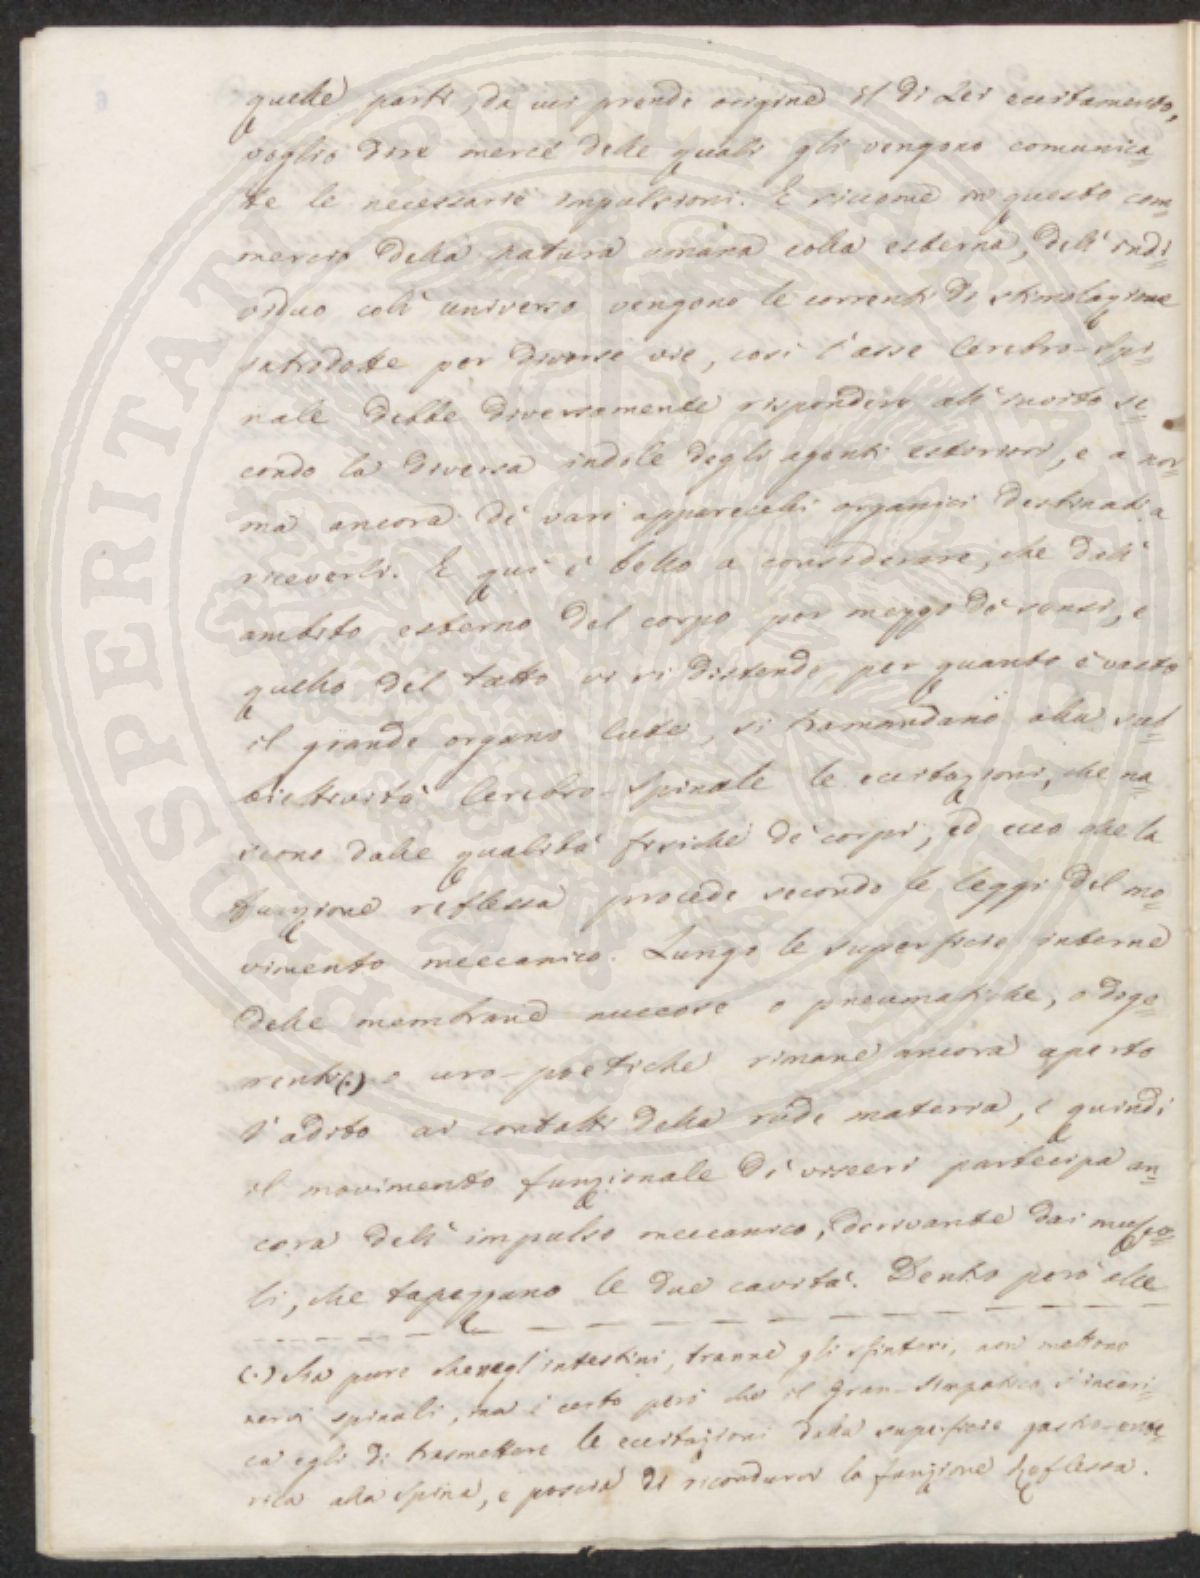 quelle parti, da cui prende origine il di Lei eccitamento,
voglio dire mercè delle quali gli vengono comunica=
te le necessarie impulsioni. E siccome in questo com=
mercio della natura umana colla esterna, dell'indi=
viduo coll'universo vengono le correnti di stimolazione
introdotte per diverse vie, così l'asse Cerebro-Spi=
nale debbe diversamente rispondere all'invito se=
condo la diversa indole degli agenti esteriori, e a nor=
ma ancora de' vari apparecchi organici destinati a
riceverli. E qui è bello a considerare, che dall'
ambito esterno del corpo per mezzo de' sensi, e
quello del tatto vi si distende per quanto è vasto
il grande organo Cute, si tramandano alla sub=
biettività Cerebro-Spinale le eccitazioni, che na=
scono dalle qualità fisiche de' corpi, ed ecco che la
funzione reflessa procede secondo le leggi del mo=
vimento meccanico. Lungo le superficie interne
delle membrane muccose o pneumatiche, o dige=
renti(·) o uro-poetiche rimane ancora aperto
l'adito ai contatti della rude materia, e quindi
il movimento funzionale de' visceri partecipa an=
cora dell'impulso meccanico, derivante dai musco=
li, che tapezzano le due cavità. Dentro però alle
(·) Sia pure che negl'intestini, tranne gli sfinteri, non mettono
nervi spinali, ma è certo però che il Gran-Simpatico s'incari=
ca egli di trasmettere le eccitazioni dalla superficie gastro-ente=
rica alla Spina, e poscia di ricondurvi la funzione Reflessa.